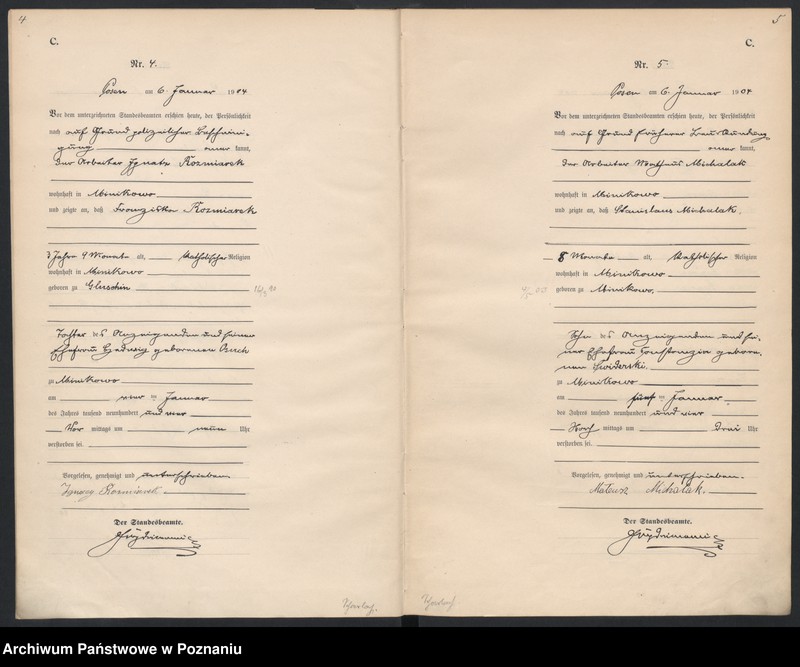 4
C.
Nr. 4.
Posen am 6. Januar 1904
Vor dem unterzeichneten Standesbeamten erschien heute, der Persönlichkeit
nach auf Grund polizeilicher Bescheini-
gung kannt,
der Arbeiter Ignatz Kozmiarek
wohnhaft in Minikowo
und zeigte an, daß Franziska Kozmiarek
3 Jahre 9 Monate alt, katholischer Religion
wohnhaft in Minikowo
geboren zu Gluschin
Tochter des Anzeigenden und seiner
Ehefrau Hedwig geborenen
zu Minikowo
am vier ten Januar
des Jahres tausend neunhundert und vier
Vor mittags um neun Uhr
verstorben sei.
Vorgelesen, genehmigt und unterschrieben
Ignacy Kozmiarek
Der Standesbeamte.
5
C.
Nr. 5.
Posen am 6. Januar 1904
Vor dem unterzeichneten Standesbeamten erschien heute, der Persönlichkeit
nach auf Grund früherer Beurkundung
kannt,
der Arbeiter Mathäus Michalak
wohnhaft in Minikowo
und zeigte an, daß Stanislaus Michalak,
8 Monate alt, katholischer Religion
wohnhaft in Minikowo
geboren zu Minikowo,
Sohn des Anzeigenden und sei-
ner Ehefrau Konstanzia gebore-
nen Swiderski.
zu Minikowo
am fünf ten Januar
des Jahres tausend neunhundert und vier
Nach mittags um drei Uhr
verstorben sei.
Vorgelesen, genehmigt und unterschrieben.
Mateusz Michalak.
Der Standesbeamte.
Archiwum Państwowe w Poznaniu